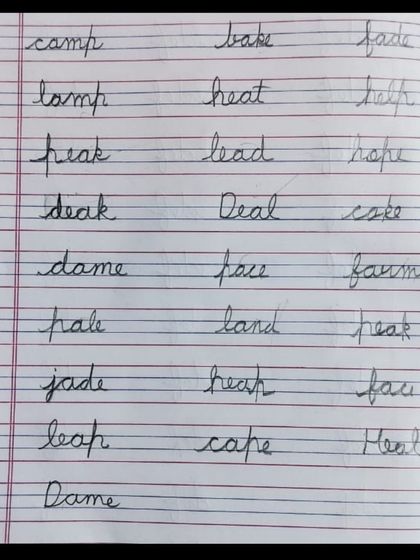 camp bake fade
lamp heat help
peak lead hope
deak Deal cake
dame face farm
pale land peak
jade heap
leap cape Heal
Dame